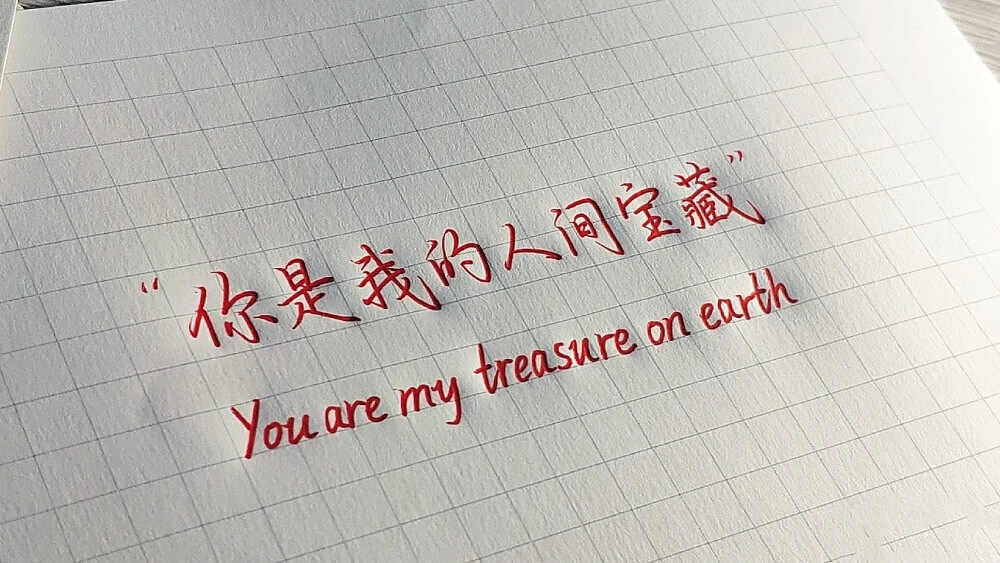 “你是我的人间宝藏”
You are my treasure on earth